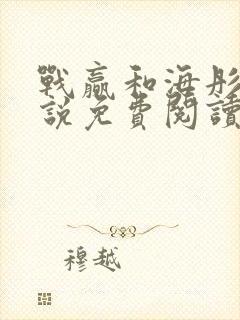 戰贏和海彤
說免費閱讀
穆越